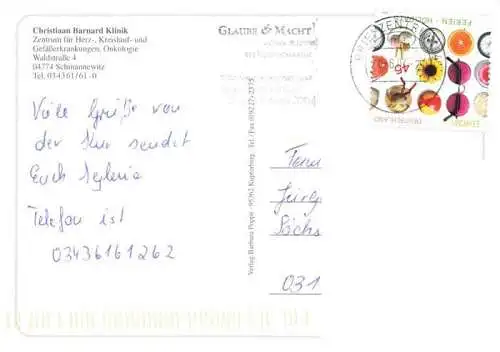 Christiaan Barnard Klinik
Zentrum für Herz-, Kreislauf- und
Gefäßerkrankungen, Onkologie
Waldstraße 4
04774 Schmannewitz
Tel. 034361/61-0
GLAUBE & MACHT
Viele Grüße von
der Kur sendet
Euch Sylvia
Telefon ist
03436161262
Verlag Barbara Poppe · 95362 Kupferberg · Tel./Fax
Jürg
Sachs
031
DEUTSCHLAND
45
BRIEFZENTRUM